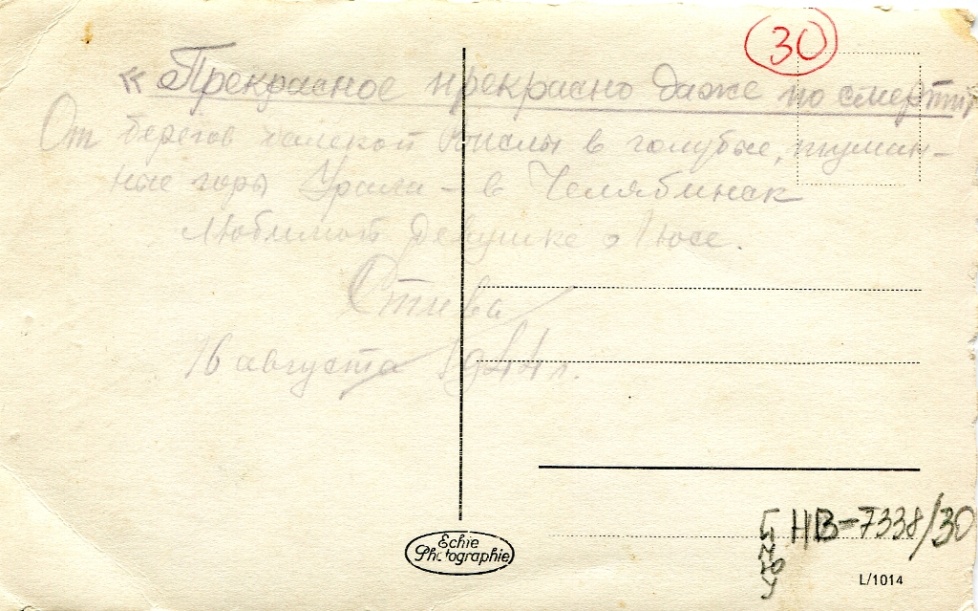 30
« Прекрасное прекрасно даже по смерти»
От берегов далекой Вислы в голубые, туман-
ные горы Урала – в Челябинск
Любимой девушке Люсе.
Стива
16 августа 1944 г.
Echte
Photographie
НВ-7338/30
L/1014